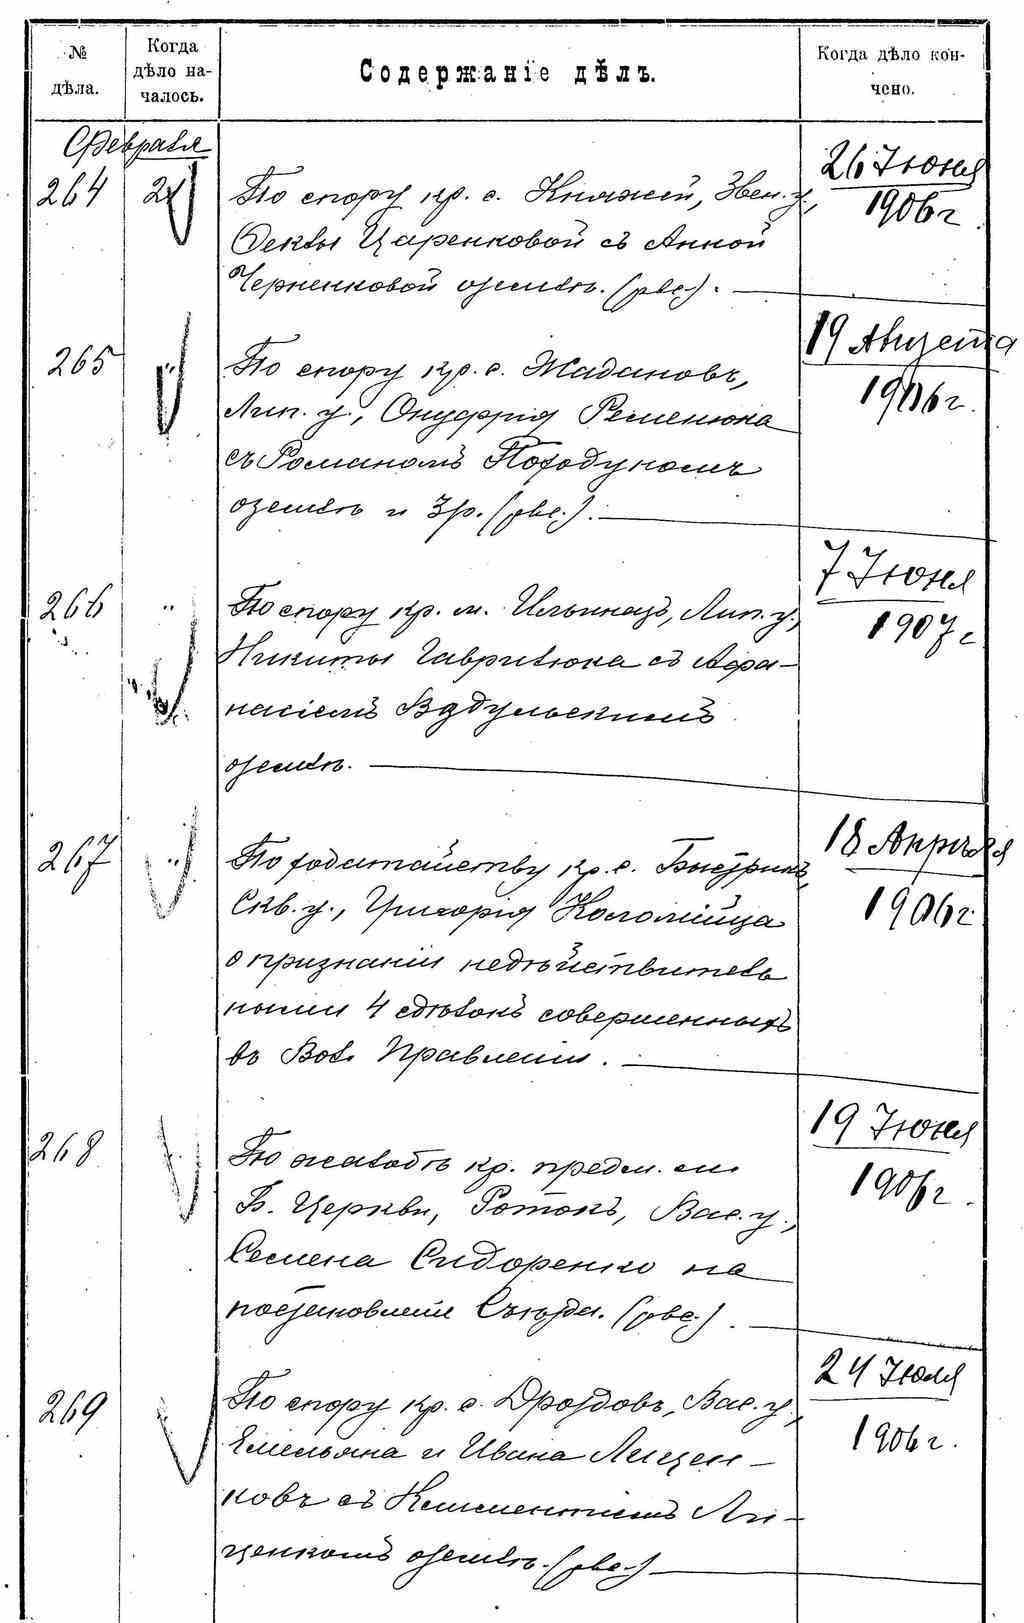 № дѣла.
Когда дѣло на-
чалось.
Содержаніе дѣлъ.
Когда дѣло кон-
чено.
Февраля
264
По спору кр. с. Княжей, Звен. у.,
Феклы Царенковой съ Анной
Черненковой о землѣ. (рве.).
26 Іюня
1906 г.
265
"
По спору кр. с. Жадановъ,
Лип. у., Онуфрія Ременюка
съ Романомъ Походукомъ
о землѣ и 3 р. (рве.).
19 Августа
1906 г.
266
"
По спору кр. м. Ильинецъ, Лип. у.,
Никиты Гаврилюка съ Афа-
насіемъ
о землѣ.
7 Іюня
1907 г
267
"
По ходатайству кр. с. Быстрикъ,
Скв. у., Григорія Коломійца
о признаніи недѣйствитель
ными 4 сдѣлокъ совершенныхъ
въ Вол. Правленіи.
18 Апрѣля
1906 г.
268
По жалобѣ кр. предм. м.
Б. Церкви, Ротокъ, Вас. у.,
Семена Сидоренко на
постановленіе Съѣзда. (рве.).
19 Іюня
1906 г.
269
По спору кр. с. Дроздовъ, Вас. у.,
Емельяна и Ивана Лищен-
ковъ съ Климентіемъ Ли-
щенкомъ о землѣ. (рве.)
24 Іюля
1906 г.